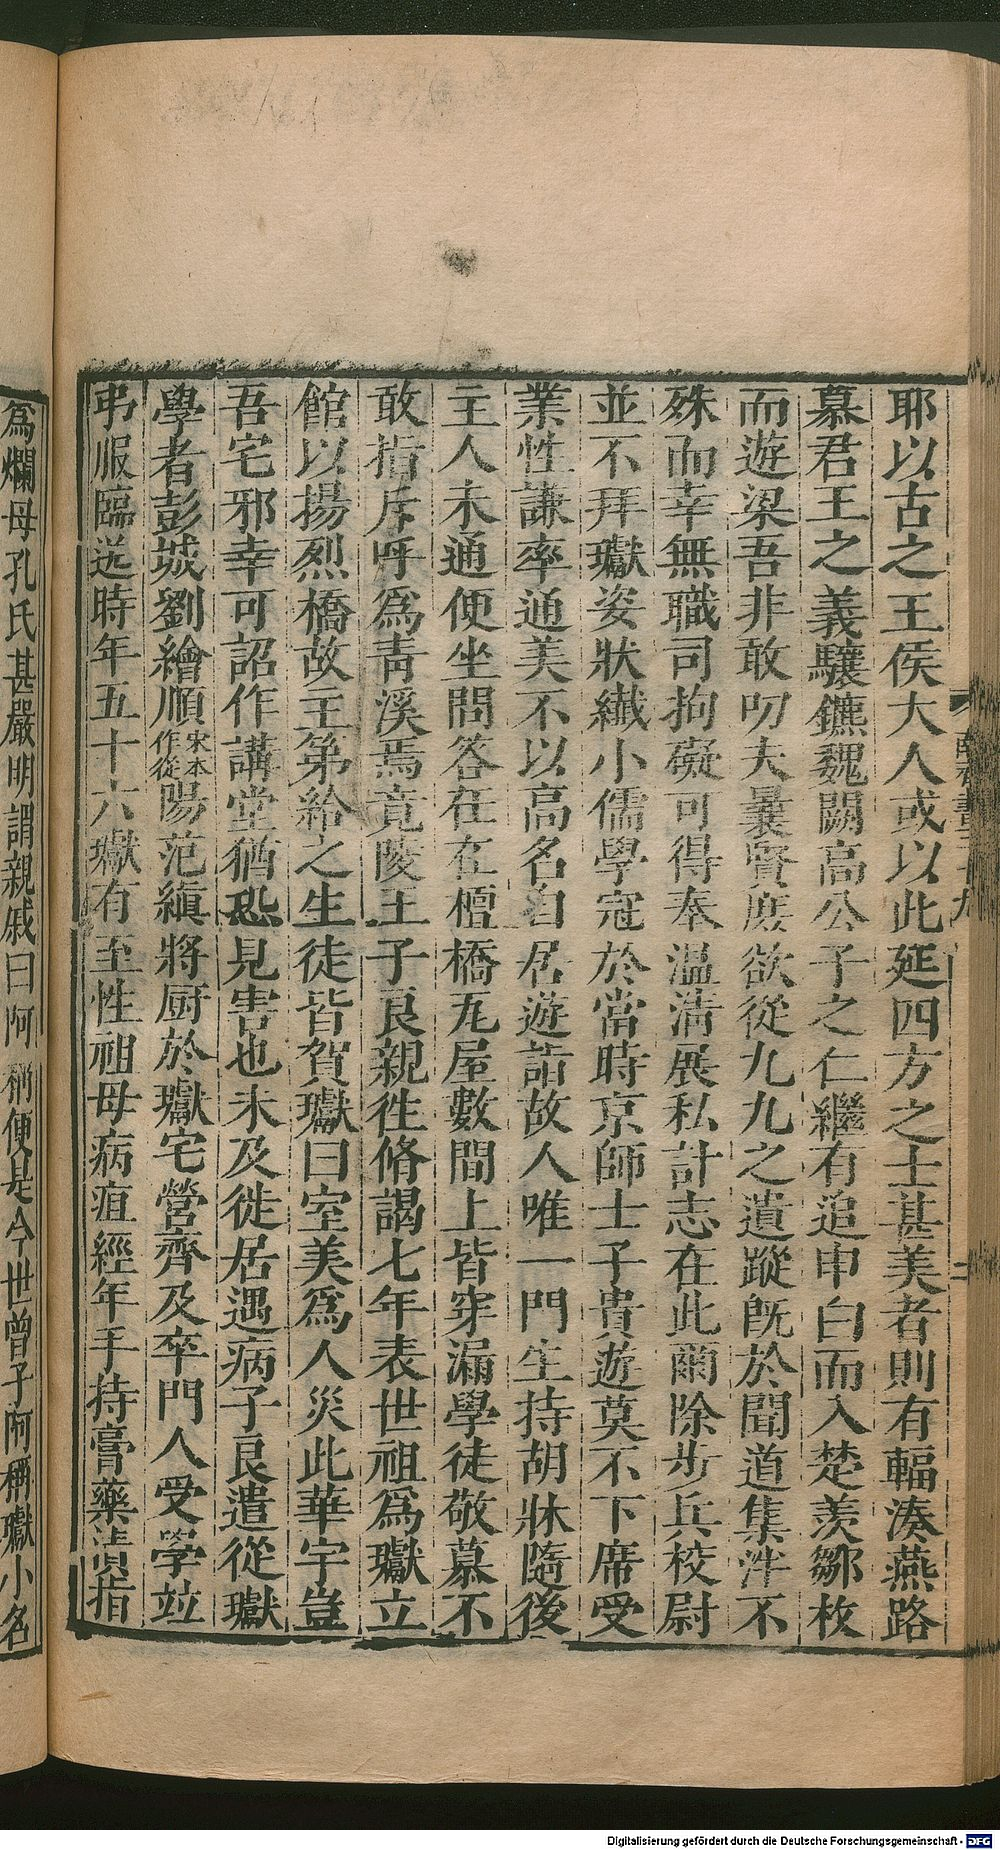 耶以古之王侯大人或以此延四方之士甚美者則有輻湊燕路
慕君王之義驤鑣魏闕高公子之仁繼有追申白而入楚羨鄒枚
而遊梁吾非敢叨夫曩賢庶欲從九九之遺蹤既於聞道集泮不
殊而幸無職司拘礙可得奉溫凊展私計志在此爾除步兵校尉
並不拜瓛姿狀纖小儒學冠於當時京師士子貴遊莫不下席受
業性謙率通美不以高名自居遊詣故人唯一門生持胡牀隨後
主人未通便坐問答住在檀橋瓦屋數間上皆穿漏學徒敬慕不
敢指斥呼為青溪焉竟陵王子良親往脩謁七年表世祖為瓛立
館以揚烈橋故主第給之生徒皆賀瓛曰室美為人災此華宇豈
吾宅邪幸可詔作講堂猶恐見害也未及徙居遇病子良遣從瓛
學者彭城劉繪順宋本作從陽范縝將厨於瓛宅營齋及卒門人受學竝
弔服臨送時年五十六瓛有至性祖母病疽經年手持膏藥漬指
為爛母孔氏甚嚴明謂親戚曰阿稱便是今世曾子阿稱瓛小名
Digitalisierung gefördert durch die Deutsche Forschungsgemeinschaft - DFG